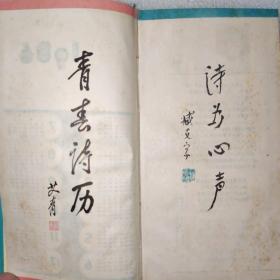 青春诗历
艾青
诗为心声
臧克家
1986